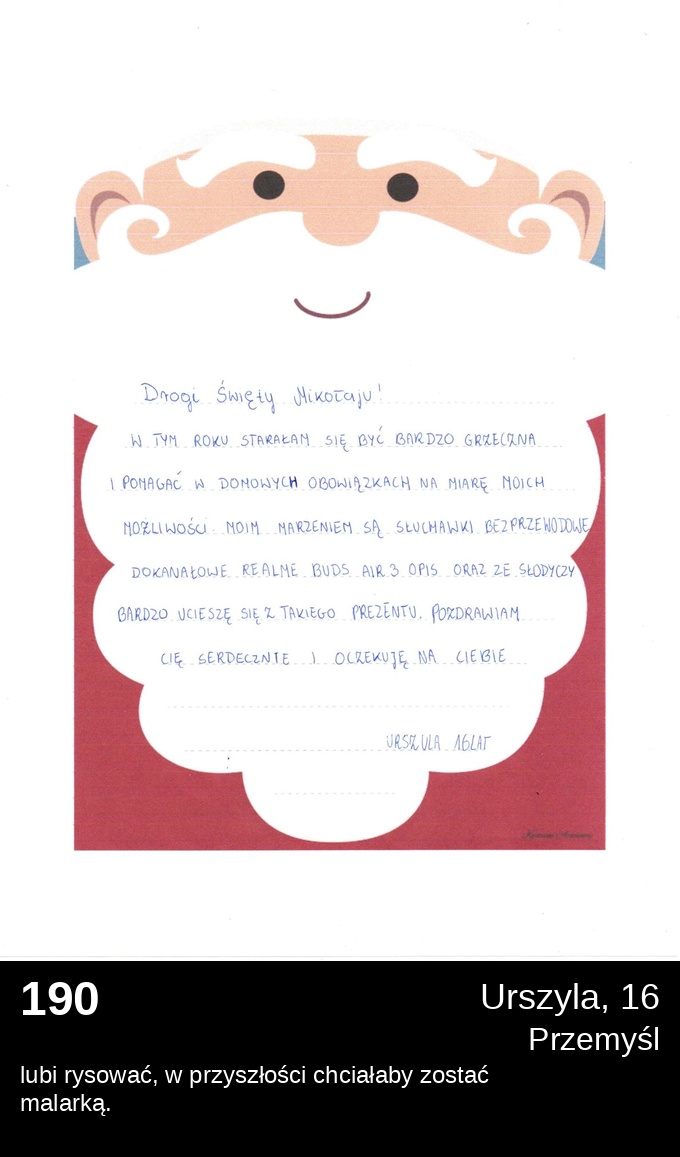 Drogi Święty Mikołaju!
W TYM ROKU STARAŁAM SIĘ BYĆ BARDZO GRZECZNA
I POMAGAĆ W DOMOWYCH OBOWIĄZKACH NA MIARĘ MOICH
MOŻLIWOŚCI. MOIM MARZENIEM SĄ SŁUCHAWKI BEZPRZEWODOWE
DOKANAŁOWE REALME BUDS AIR 3 OPIS ORAZ ZE SŁODYCZY
BARDZO UCIESZĘ SIĘ Z TAKIEGO PREZENTU. POZDRAWIAM
CIĘ SERDECZNIE I OCZEKUJĘ NA CIEBIE
URSZULA 16 LAT
190
Urszyla, 16
Przemyśl
lubi rysować, w przyszłości chciałaby zostać
malarką.